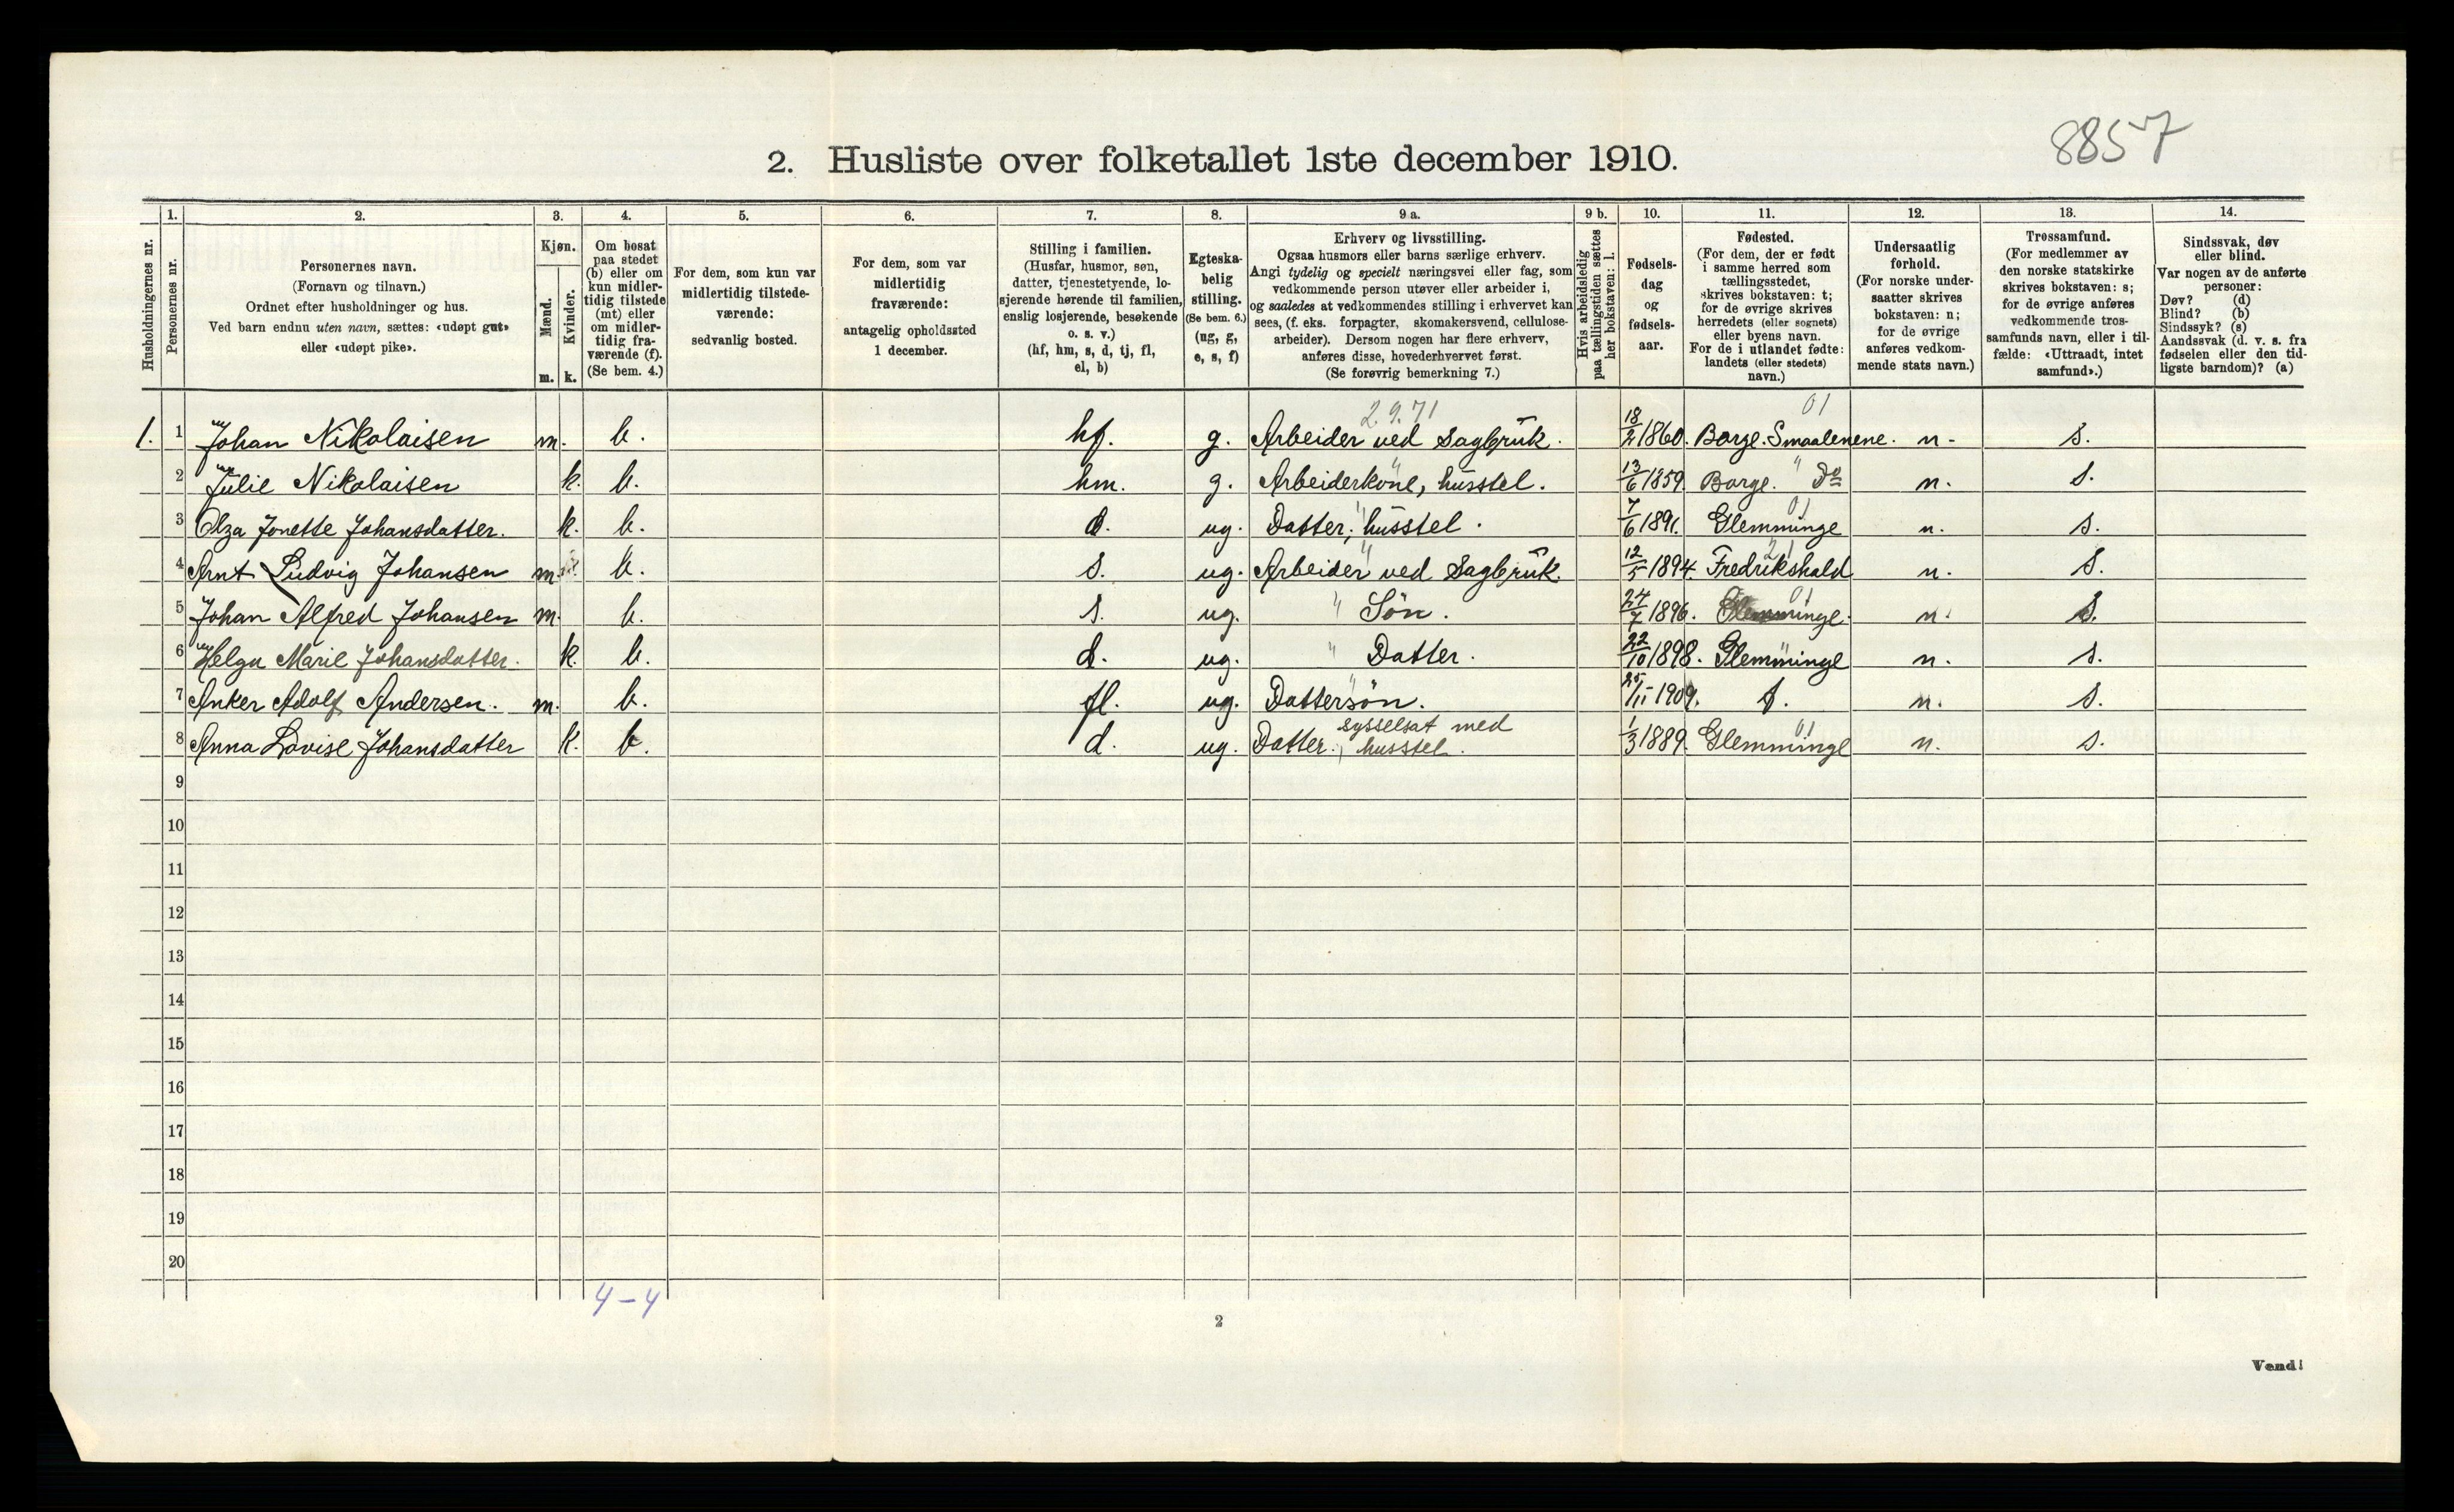 8857
2. Husliste over folketallet 1ste december 1910.
Husholdningernes nr.
1.
Personernes nr.
2.
Personernes navn.
(Fornavn og tilnavn.)
Ordnet efter husholdninger og hus.
Ved barn endnu uten navn, sættes: «udøpt gut»
eller «udøpt pike».
3.
Kjøn.
Mænd.
m.
Kvinder.
k.
4.
Om bosat
paa stedet
(b) eller om
kun midler-
tidig tilstede
(mt) eller
om midler-
tidig fra-
værende (f).
(Se bem. 4.)
5.
For dem, som kun var
midlertidig tilstede-
værende:
sedvanlig bosted.
6.
For dem, som var
midlertidig
fraværende:
antagelig opholdssted
1 december.
7.
Stilling i familien.
(Husfar, husmor, søn,
datter, tjenestetyende, lo-
sjerende hørende til familien,
enslig losjerende, besøkende
o. s. v.)
(hf, hm, s, d, tj, fl,
el, b)
8.
Egteska-
belig
stilling.
(Se bem. 6.)
(ug, g,
e, s, f)
9 a.
Erhverv og livsstilling.
Ogsaa husmors eller barns særlige erhverv.
Angi tydelig og specielt næringsvei eller fag, som
vedkommende person utøver eller arbeider i,
og saaledes at vedkommendes stilling i erhvervet kan
sees, (f. eks. forpagter, skomakersvend, cellulose-
arbeider). Dersom nogen har flere erhverv,
anføres disse, hovederhvervet først.
(Se forøvrig bemerkning 7.)
9 b.
Hvis arbeidsledig
paa tællingstiden sættes
her bokstaven: l.
10.
Fødsels-
dag
og
fødsels-
aar.
11.
Fødested.
(For dem, der er født
i samme herred som
tællingsstedet,
skrives bokstaven: t;
for de øvrige skrives
herredets (eller sognets)
eller byens navn.
For de i utlandet fødte:
landets (eller stedets)
navn.)
12.
Undersaatlig
forhold.
(For norske under-
saatter skrives
bokstaven: n;
for de øvrige
anføres vedkom-
mende stats navn.)
13.
Trossamfund.
(For medlemmer av
den norske statskirke
skrives bokstaven: s;
for de øvrige anføres
vedkommende tros-
samfunds navn, eller i til-
fælde: «Uttraadt, intet
samfund».)
14.
Sindssvak, døv
eller blind.
Var nogen av de anførte
personer:
Døv? (d)
Blind? (b)
Sindssyk? (s)
Aandssvak (d. v. s. fra
fødselen eller den tid-
ligste barndom)? (a)
2.9.71 01
1. 1 Johan Nikolaisen m. b. hf. g. Arbeider ved Sagbruk. 18/2 1860. Borge. Smaalenene. n. s.
2 Julie Nikolaisen k. b. hm. g. Arbeiderkone, husstel. 13/6 1859. Borge. " Do n. s.
01
3 Olga Jonette Johansdatter. k. b. d. ug. Datter, husstel. 7/6 1891. Glemminge n. s.
21
4 Arnt Ludvig Johansen m. b. s. ug. Arbeider ved Sagbruk. 12/5 1894. Fredrikshald n. s.
01
5 Johan Alfred Johansen m. b. s. ug. " Søn. 24/7 1896. Glemminge. n. s.
6 Helga Marie Johansdatter. k. b. d. ug. " Datter. 22/10 1898. Glemminge n. s.
7 Anker Adolf Andersen. m. b. fl. ug. Dattersøn. 25/11 1909. t. n. s.
sysselsat med 01
8 Anna Lovise Johansdatter k. b. d. ug. Datter, husstel. 1/3 1889. Glemminge n. s.
9
10
11
12
13
14
15
16
17
18
19
20
4-4
2
Vend!